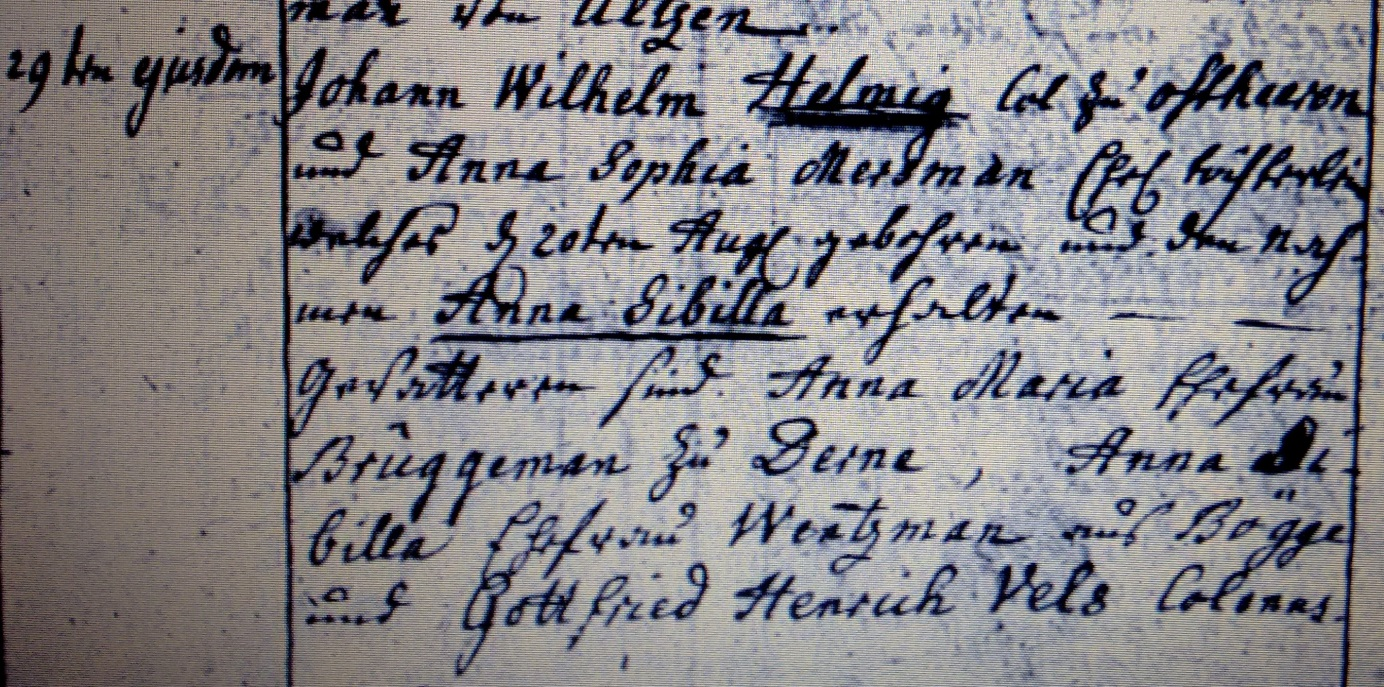 man von Ulgen
29ten ejusdem Johann Wilhelm Helmig Col zu ostheeren
und Anna Sophia Mersman Ehel töchterlein
welches d 20ten Aug gebohren und den Nah-
men Anna Sibilla erhalten — —
Gevatteren sind. Anna Maria Ehefrau
Brüggeman zu Derne, Anna Si-
billa Ehefrau Weetzman aus Bögge
und Gottfried Henrich Vels Colonus.